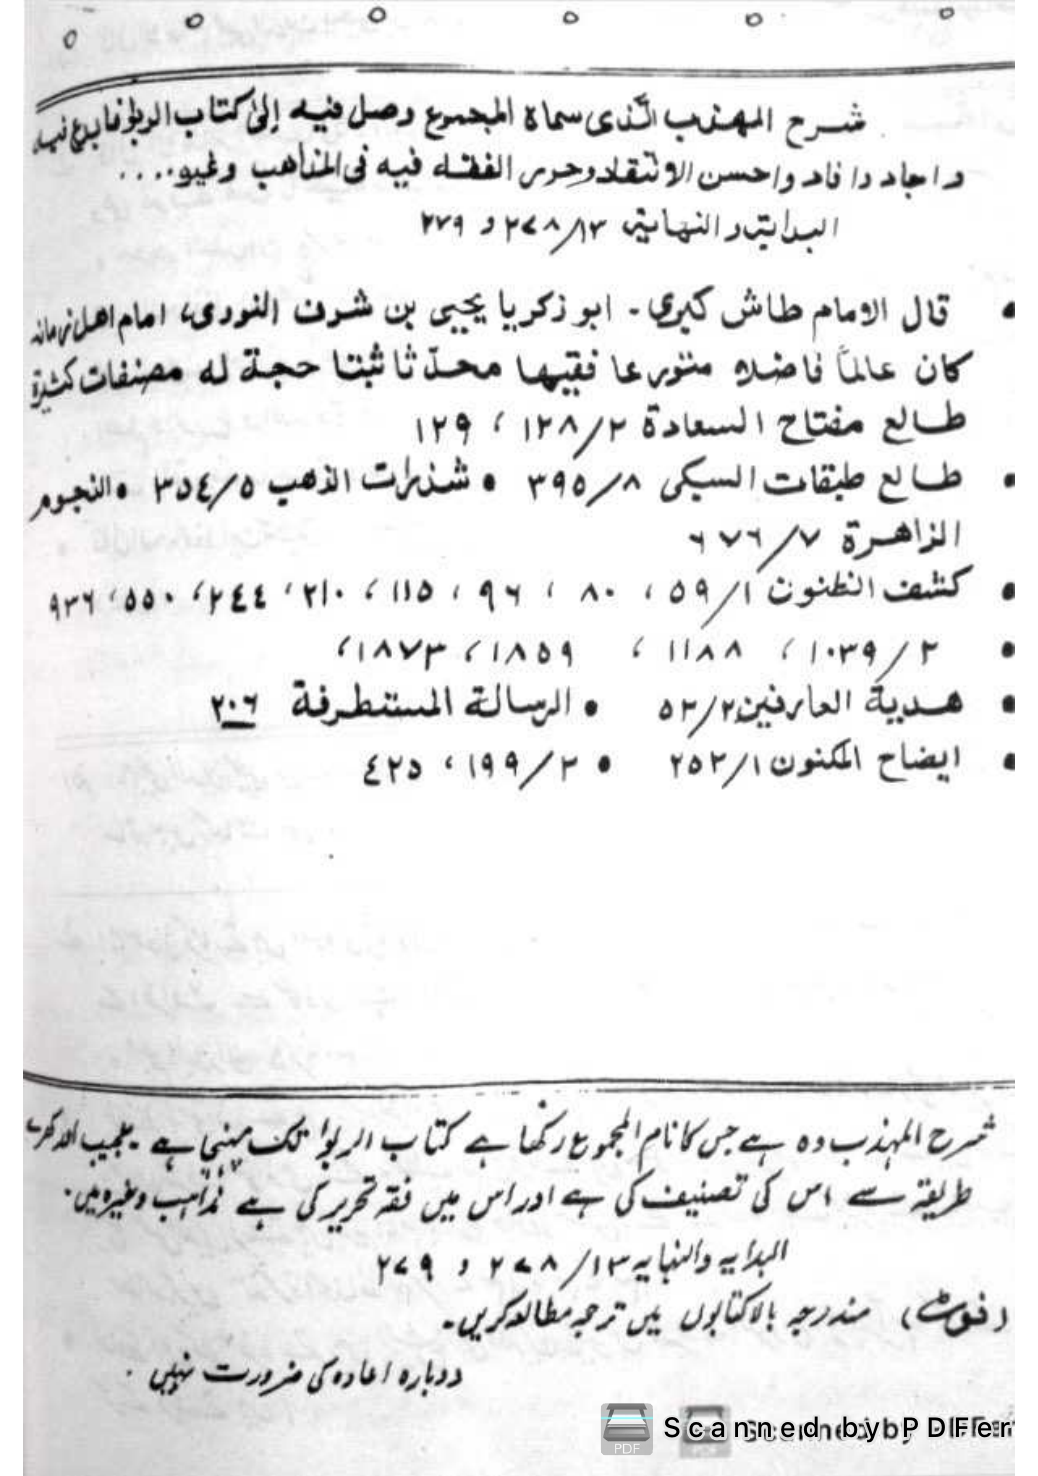 شرح المهذب الّذی سماه المجموع وصل فیه إلی کتاب الربوٰ فابدع فیه
واجاد وافاد واحسن الانتقاد وحرر الفقه فیه فی المذاهب وغیره....
البدایة والنهایة ١٣/٢٧٨ و ٢٧٩
• قال الامام طاش کبری - ابو زکریا یحیی بن شرف النووی، امام اهل زمانه
کان عالماً فاضلا متورعا فقیها محدّثا ثبتا حجة له مصنفات کثیرة
طالع مفتاح السعادة ٢/١٢٨، ١٢٩
• طالع طبقات السبکی ٨/٣٩٥ • شذرات الذهب ٥/٣٥٤ • النجوم
الزاهرة ٧/٦٧٦
• کشف الظنون ١/٥٩، ٨٠، ٩٦، ١١٥، ٢١٠، ٢٤٤، ٥٥٠، ٩٣٦
• ٢/١٠٣٩، ١١٨٨، ١٨٥٩، ١٨٧٣،
• هدیة العارفین ٢/٥٢ • الرسالة المستطرفة ٢٠٦
• ایضاح المکنون ١/٢٥٢ • ٢/١٩٩، ٤٢٥
شرح المہذب وہ ہے جس کا نام المجموع رکھا ہے کتاب الربوٰا تک پہنچی ہے۔ عجیب
طریقہ سے اس کی تصنیف کی ہے اور اس میں فقہ تحریر کی ہے مذاہب وغیرہ میں۔
البدایہ والنہایہ ١٣/٢٧٨ و ٢٧٩
(نوٹ) مندرجہ بالا کتابوں میں ترجمہ مطالعہ کریں۔
دوبارہ اعادہ کی ضرورت نہیں۔
PDF Scanned by PDFer